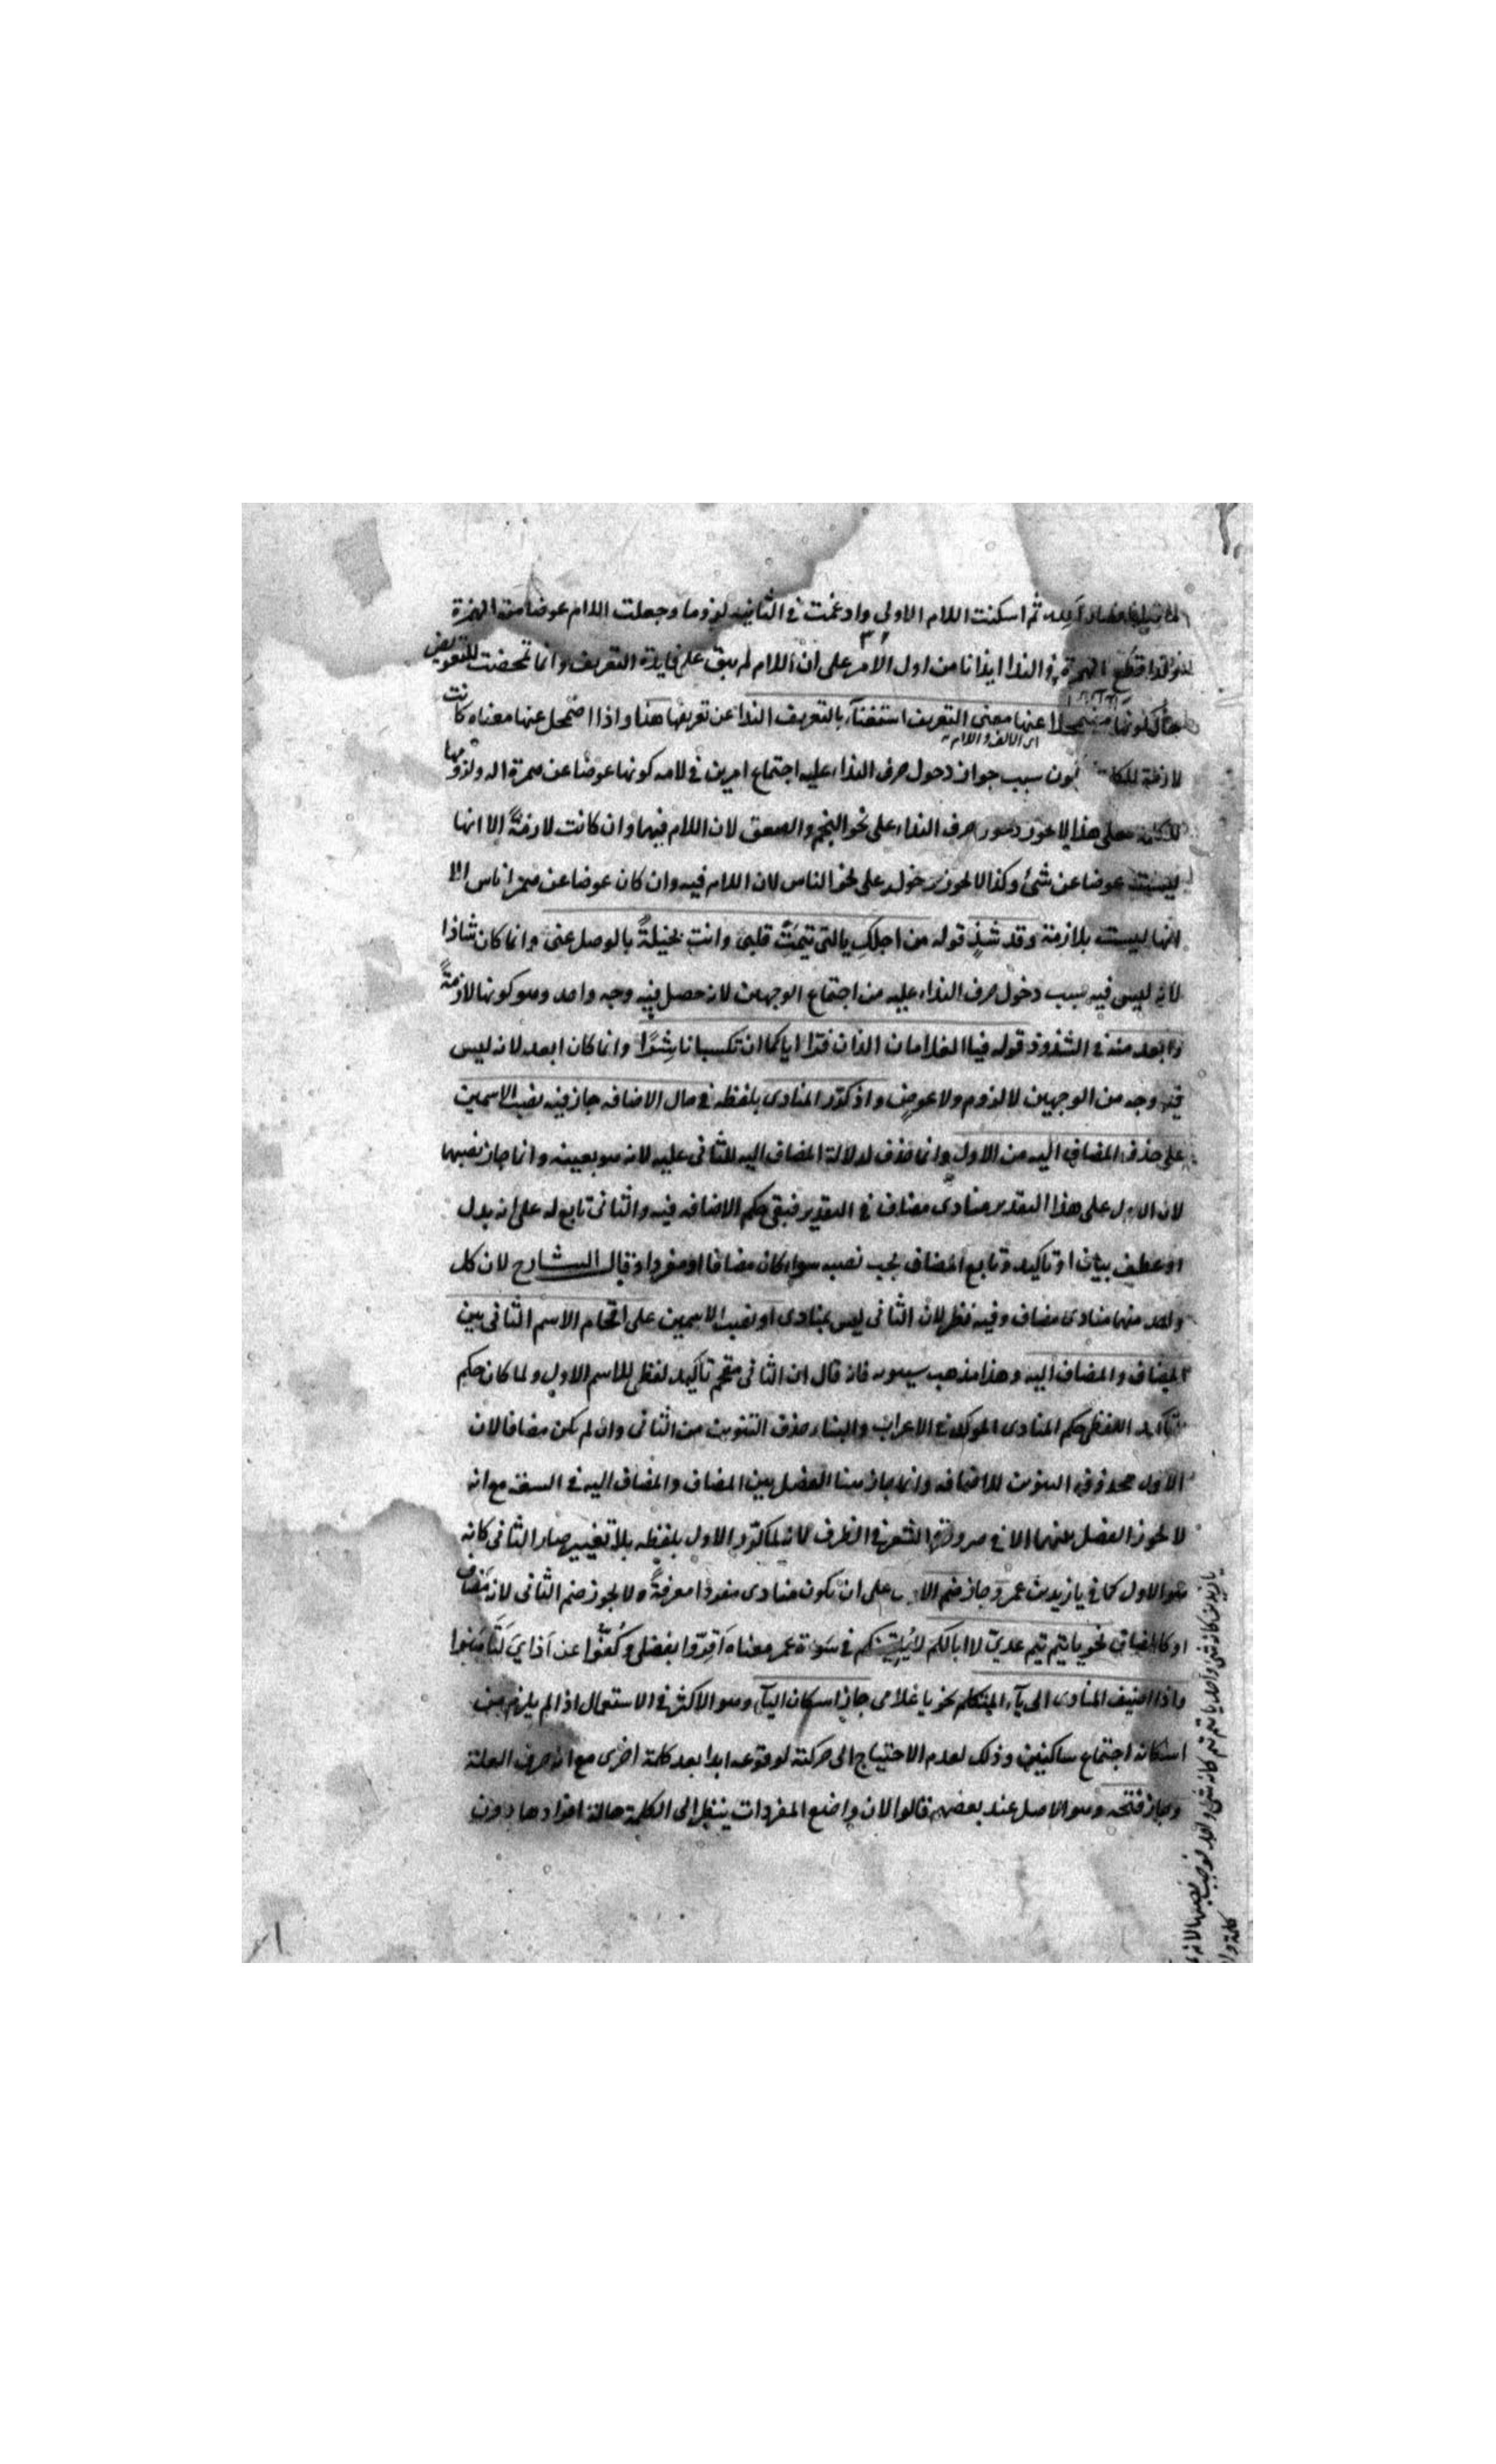 ما قبلها فصار أللاه ثم اسكنت اللام الاولى وادغمت في الثانية لزوما وجعلت اللام عوضا من الهمزة
قطع الهمزة في الندا ايذانا من اول الامر على ان اللام لم يبق على فايدة التعريف وانما تمحضت للتعويض
حال كونها مضمحلا عنها معنى التعريف استغناء بالتعريف الندا عن تعريفها هنا واذا اضمحل عنها معناه كانت
اى الالف واللام
لازمة للكلمة يكون سبب جواز دخول حرف النداء عليه اجتماع امرين في لامه كونها عوضا عن همزة اله ولزومها
للكلمة فعلى هذا لا يجوز دخول حرف النداء على نحو النجم والصعق لان اللام فيهما وان كانت لازمةً الا انها
ليست عوضا عن شئ وكذا لا يجوز دخوله على نحو الناس لان اللام فيه وان كان عوضا عن همزة اناس الا
انها ليست بلازمة وقد شذ قوله من اجلكِ يا التى تيمتِ قلبى وانتِ بخيلةٌ بالوصل عنى وانما كان شاذا
لانه ليس فيه سبب دخول حرف النداء عليه من اجتماع الوجهين لانه حصل فيه وجه واحد وهو كونها لازمةً
وابعد منه في الشذوذ قوله فيا الغلامان اللذان فرّا اياكما ان تكسبانا شرًّا وانما كان ابعد لانه ليس
فيه وجه من الوجهين لا لزوم ولا عوض واذ كرّر المنادى بلفظه في حال الاضافه جاز فيه نصب الاسمين
على حذف المضاف اليه من الاول وانما حذف لدلالة المضاف اليه للثانى عليه لانه هو بعينه وانما جاز نصبهما
لان الاول على هذا التقدير منادى مضاف في التقدير فبقى حكم الاضافه فيه والثانى تابع له على انه بدل
او عطف بيان او تاكيد وتابع المضاف يجب نصبه سواء كان مضافا او مفردا وقال الشارح لان كل
واحد منهما منادى مضاف وفيه نظر لان الثانى ليس بمنادى او نصب الاسمين على اقحام الاسم الثانى بين
المضاف والمضاف اليه وهذا مذهب سيبويه فانه قال ان الثانى مقحم تاكيد لفظى للاسم الاول ولما كان حكم
التاكيد اللفظى حكم المنادى الموكد في الاعراب والبناء حذف التنوين من الثانى وان لم يكن مضافا لان
الاول محذوف التنوين للاضافه وانما جاز هنا الفصل بين المضاف والمضاف اليه في السعة مع انه
لا يجوز الفصل بينهما الا في ضرورة الشعر في الظرف لانه لما كرّر الاول بلفظه بلا تغيير صار الثانى كانه
هو الاول كما في يا زيد بن عمر وجاز ضم الاول على ان يكون منادى مفردا معرفةً ولا يجوز ضم الثانى لانه مضاف
او كالمضاف نحو يا تيم تيم عدىّ لا ابا لكم لا يُلقينّكم في سوءة عمر معناه اقرّوا بفضلى وكُفّوا عن اذاىَ
واذا اضيف المنادى الى ياء المتكلم نحو يا غلامى جاز اسكان الياء وهو الاكثر في الاستعمال اذا لم يلزم من
اسكانه اجتماع ساكنين وذلك لعدم الاحتياج الى حركته لوقوعه ابدا بعد كلمة اخرى مع انه حرف العلة
وجاز فتحه وهو الاصل عند بعضهم قالوا لان واضع المفردات ينظر الى الكلمة حالة افرادها دون
يا زيد بن كانه شئ واحد يا تيم تيم كانه شئ واحد فوجب نصبهما لانه
كلمة وا